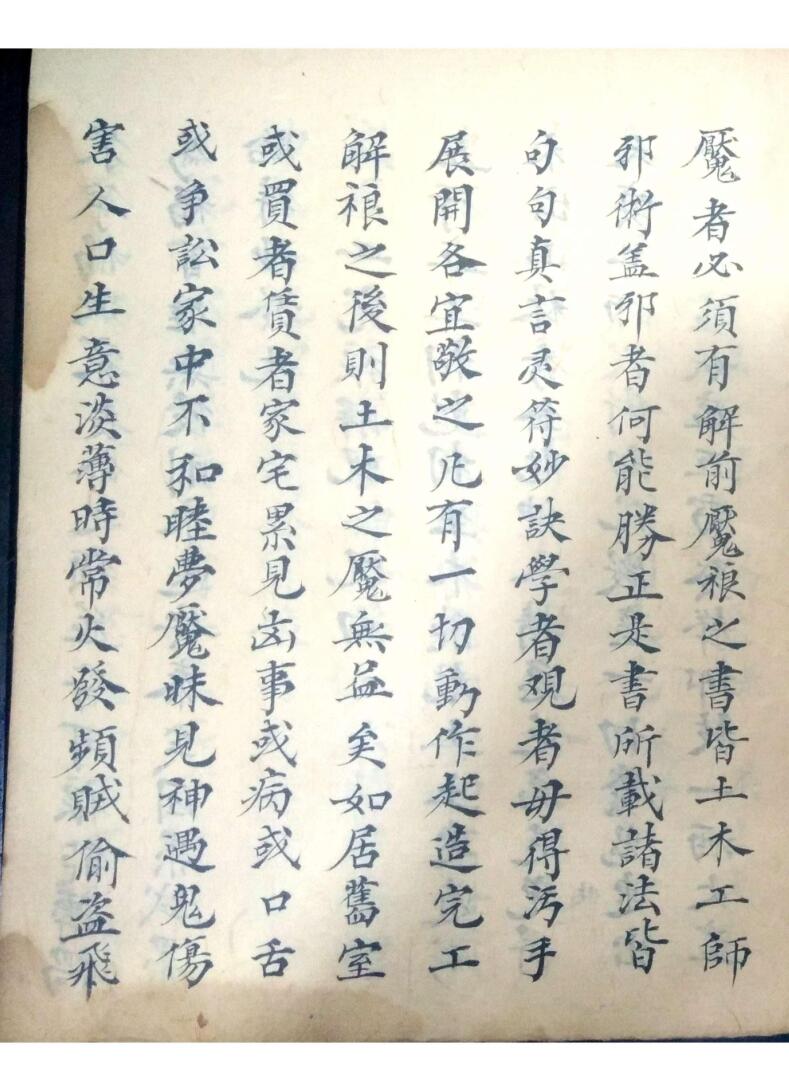 魘者必須有解前魘禳之書皆土木工師
邪術盖邪者何能勝正是書所載諸法皆
句句真言灵符妙訣學者观者毋得汚手
展開各宜敬之凢有一切動作起造完工
解禳之後則土木之魘無益矣如居舊室
或買者賃者家宅累見凶事或病或口舌
或争訟家中不和睦夢魘昧見神遇鬼傷
害人口生意淡薄時常火發頻賊偷盗飛